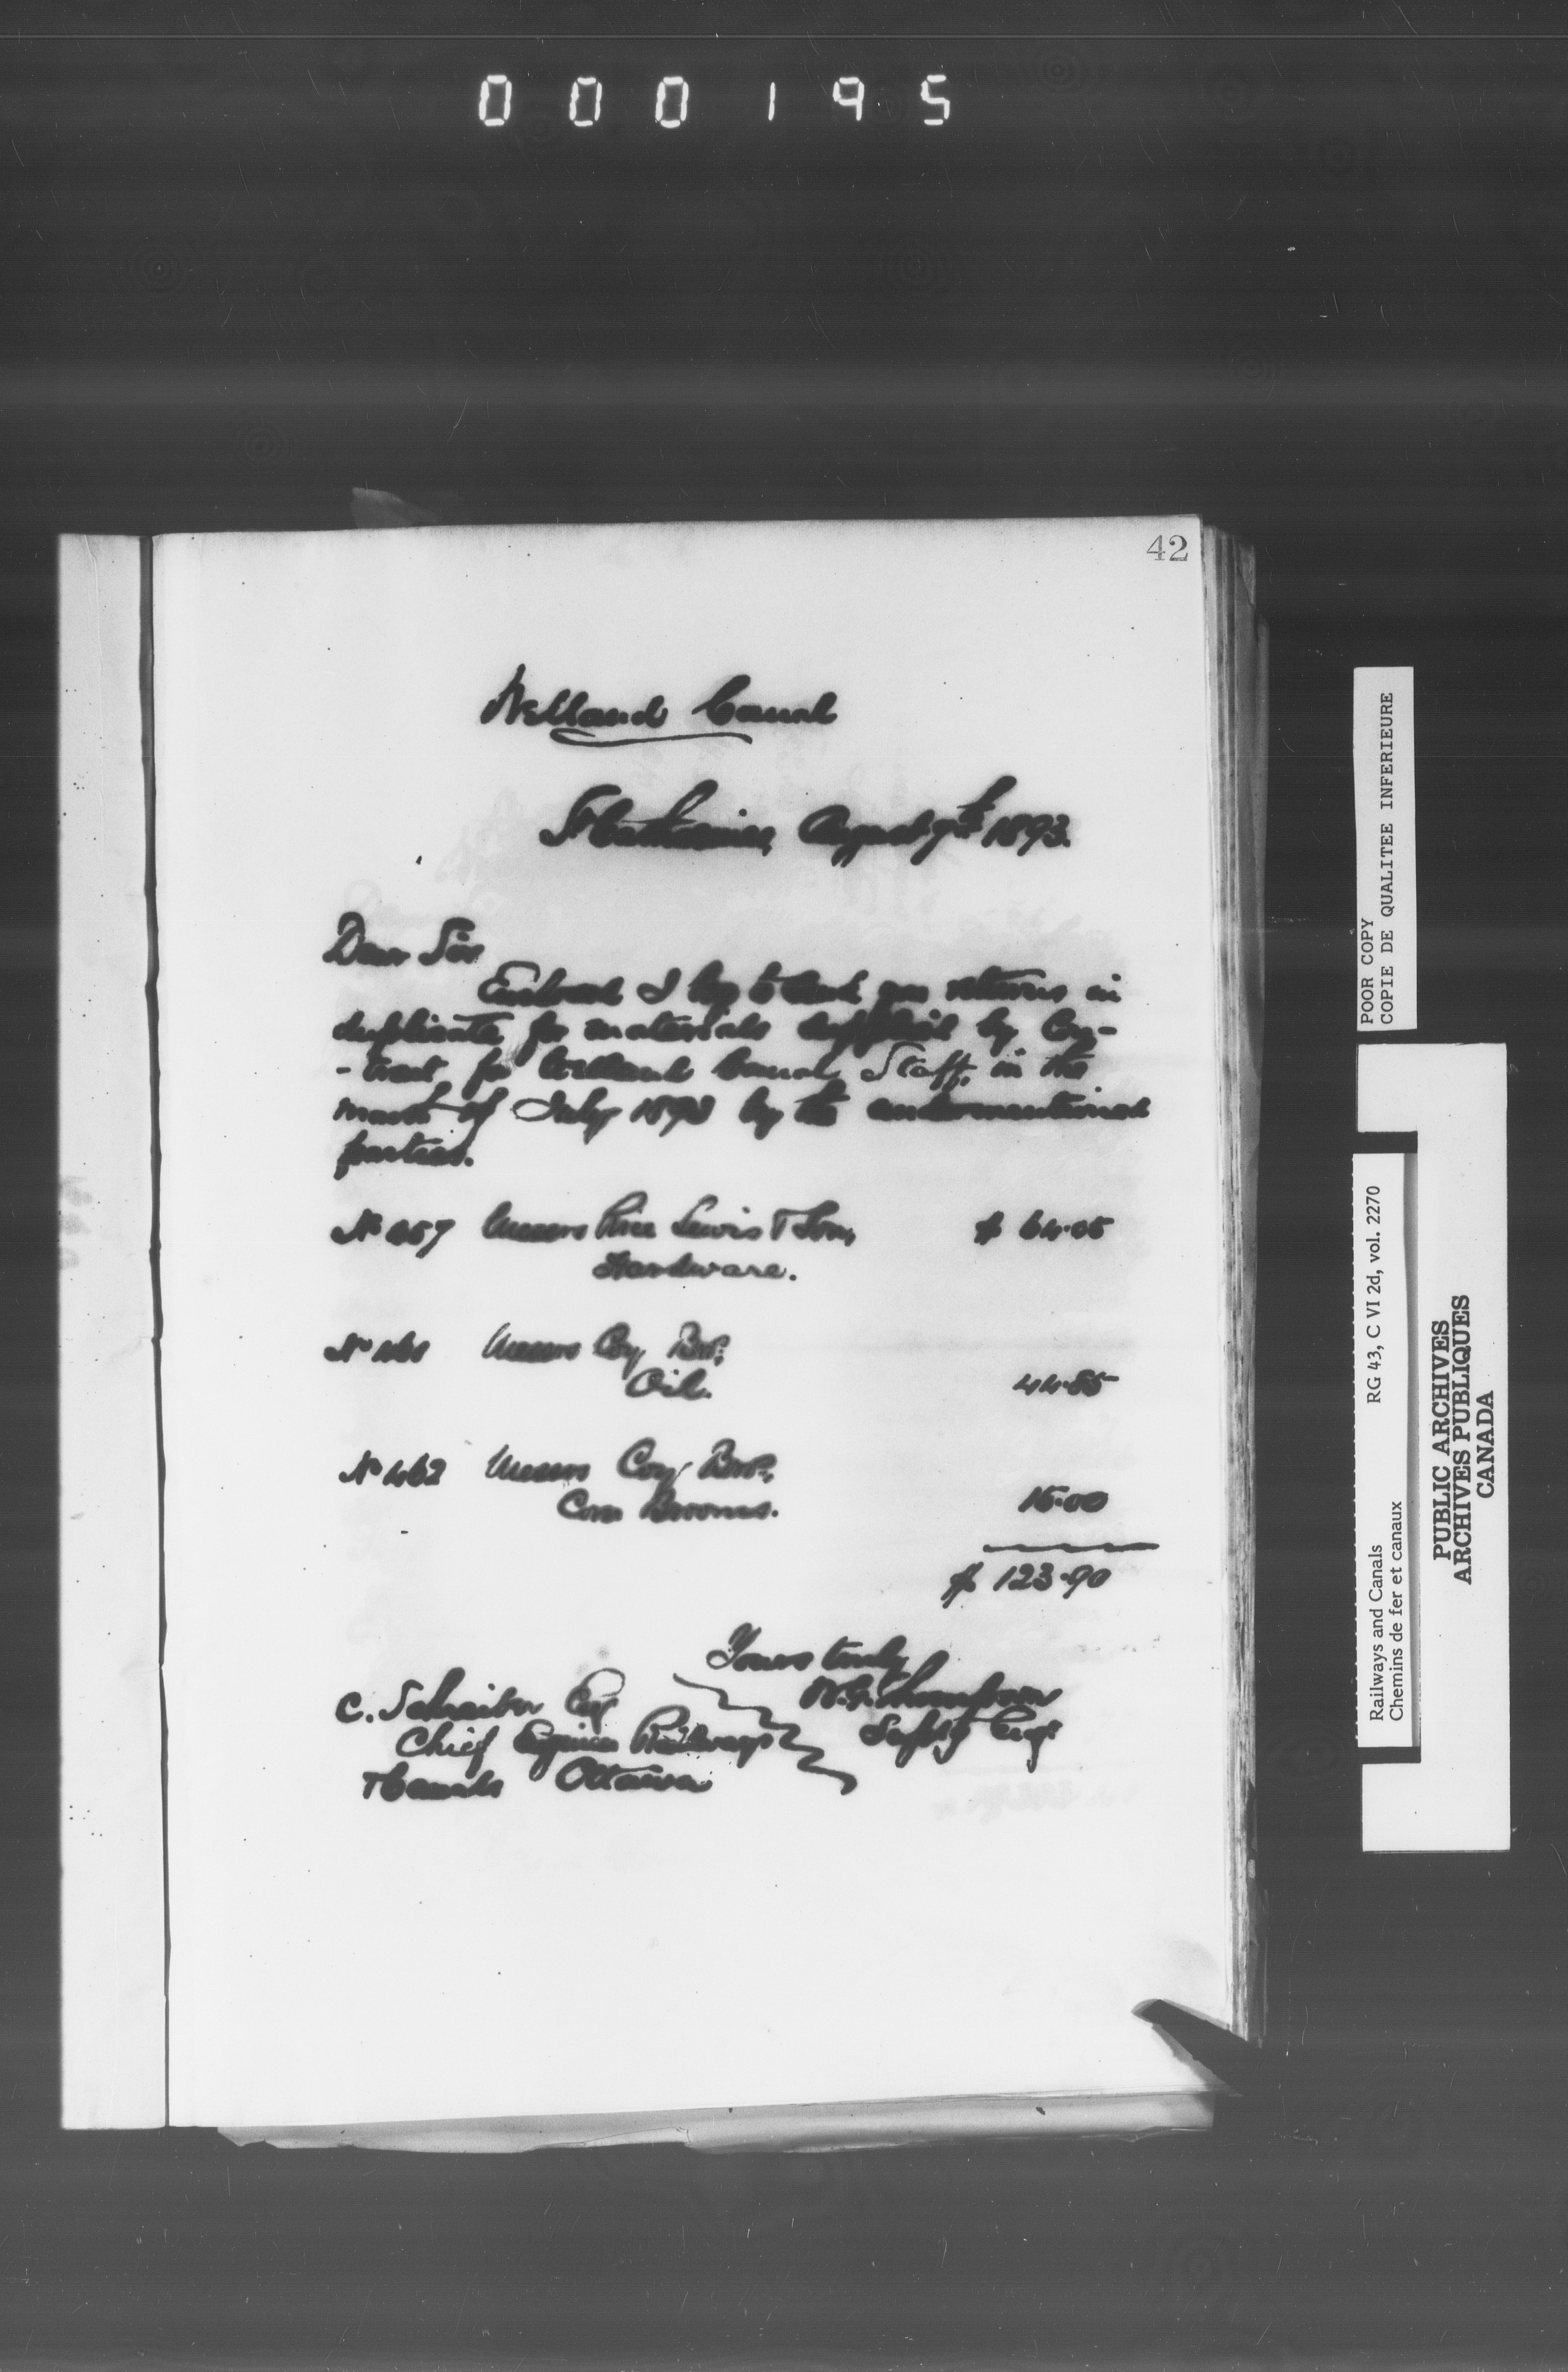 000195
42
Welland Canal
St Catharines, August 9th 1893.
Dear Sir
Enclosed I beg to hand you returns in
duplicate, for materials supplied by Con-
-tract, for Welland Canal Staff, in the
month of July 1893 by the undermentioned
parties.
No Messrs Rice Lewis & Son, $ 64.05
Hardware.
No 461 Messrs Coy Bros.
Oil. 44.85
No 462 Messrs Coy Bros,
Corn Brooms. 15.00
$ 123.90
Yours truly
W.G. Thompson
Supty Eng.
C. Schreiber Esq
Chief Engineer Railways
& Canals Ottawa
POOR COPY
COPIE DE QUALITEE INFERIEURE
Railways and Canals RG 43, C VI 2d, vol. 2270
Chemins de fer et canaux
PUBLIC ARCHIVES
ARCHIVES PUBLIQUES
CANADA